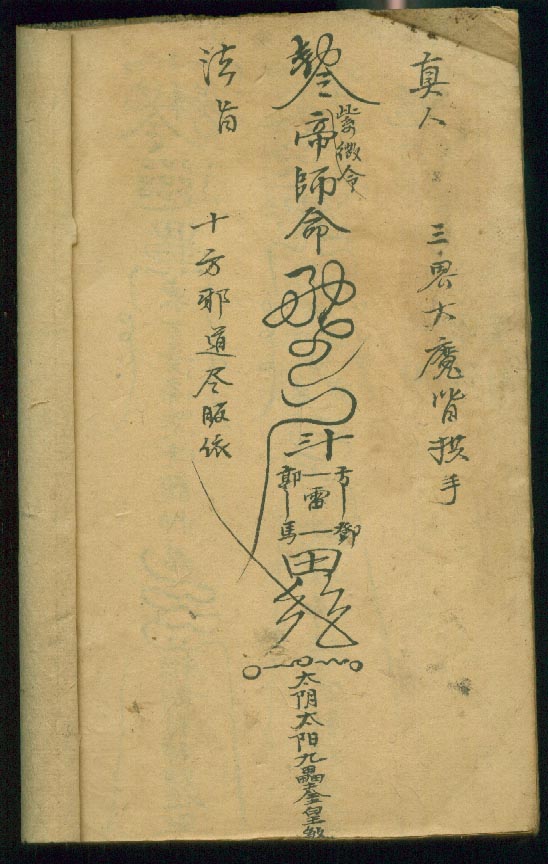 真人
三界大魔皆拱手
紫微令
帝師命
斗
方 雷 郭
鄧 馬
太阴太阳九
皇
法旨
十方邪道尽皈依